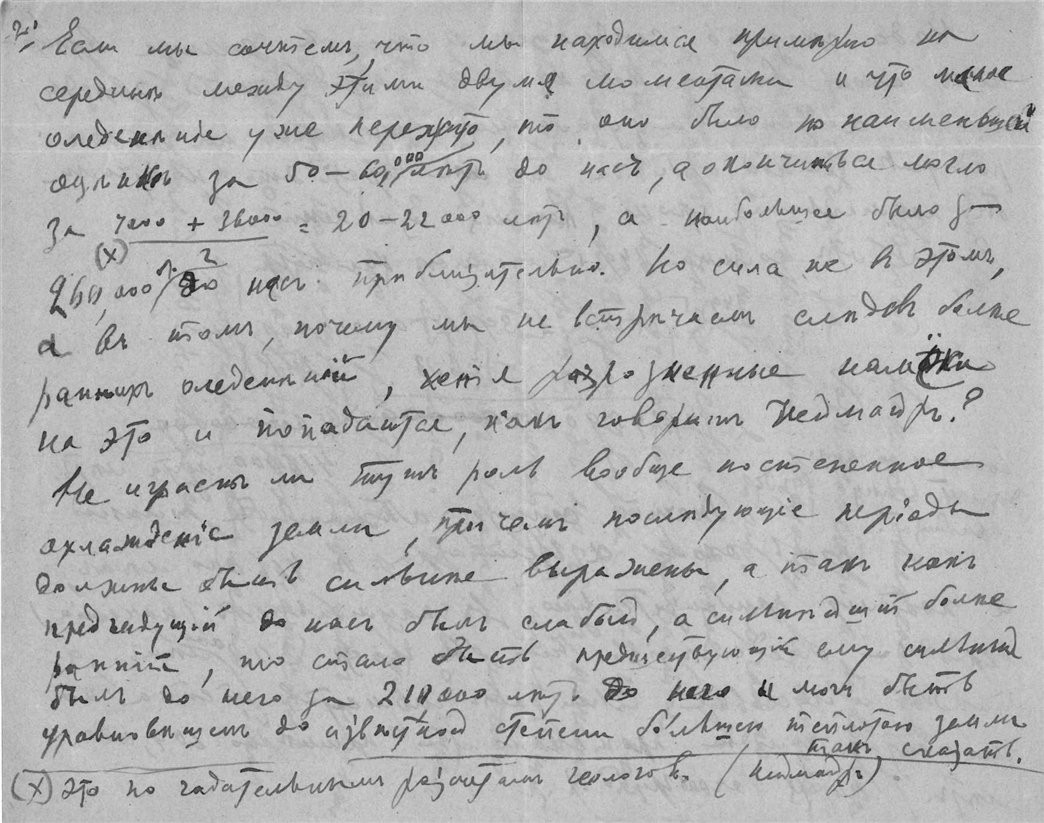 Если мы сочтемъ, что мы находимся примѣрно на
серединѣ между этими двумя моментами и что малое
оледенѣние уже пережито, то оно было по наименьшей
оцѣнкѣ за 50–60,000 лѣтъ до насъ, а окончиться могло
за (7000 + 36000)/2 = 20–22 000 лѣтъ, а наибольшее было
(х)
260,000 л. до насъ приблизительно. Но сила не въ этомъ,
а въ томъ, почему мы не встрѣчаемъ слѣдовъ болѣе
раннихъ оледенѣній, хотя разрозненные намѣки
на это и попадаются, какъ говоритъ Неймайръ?
Не играетъ ли тутъ роль вообще постепенное
охлажденіе земли, причемъ послѣдующіе періоды
должны быть сильнѣе выражены, а такъ какъ
предъидущій до насъ былъ слабый, а сильнѣйшій болѣе
ранній, то стало быть предшествующій ему сильный
былъ до него за 210000 лѣтъ до него и могъ быть
уравновѣшенъ до извѣстной степени бо́льшею теплотою земли
такъ сказать.
(х) Это по гадательнымъ разсчетамъ геологовъ. (Неймайръ)